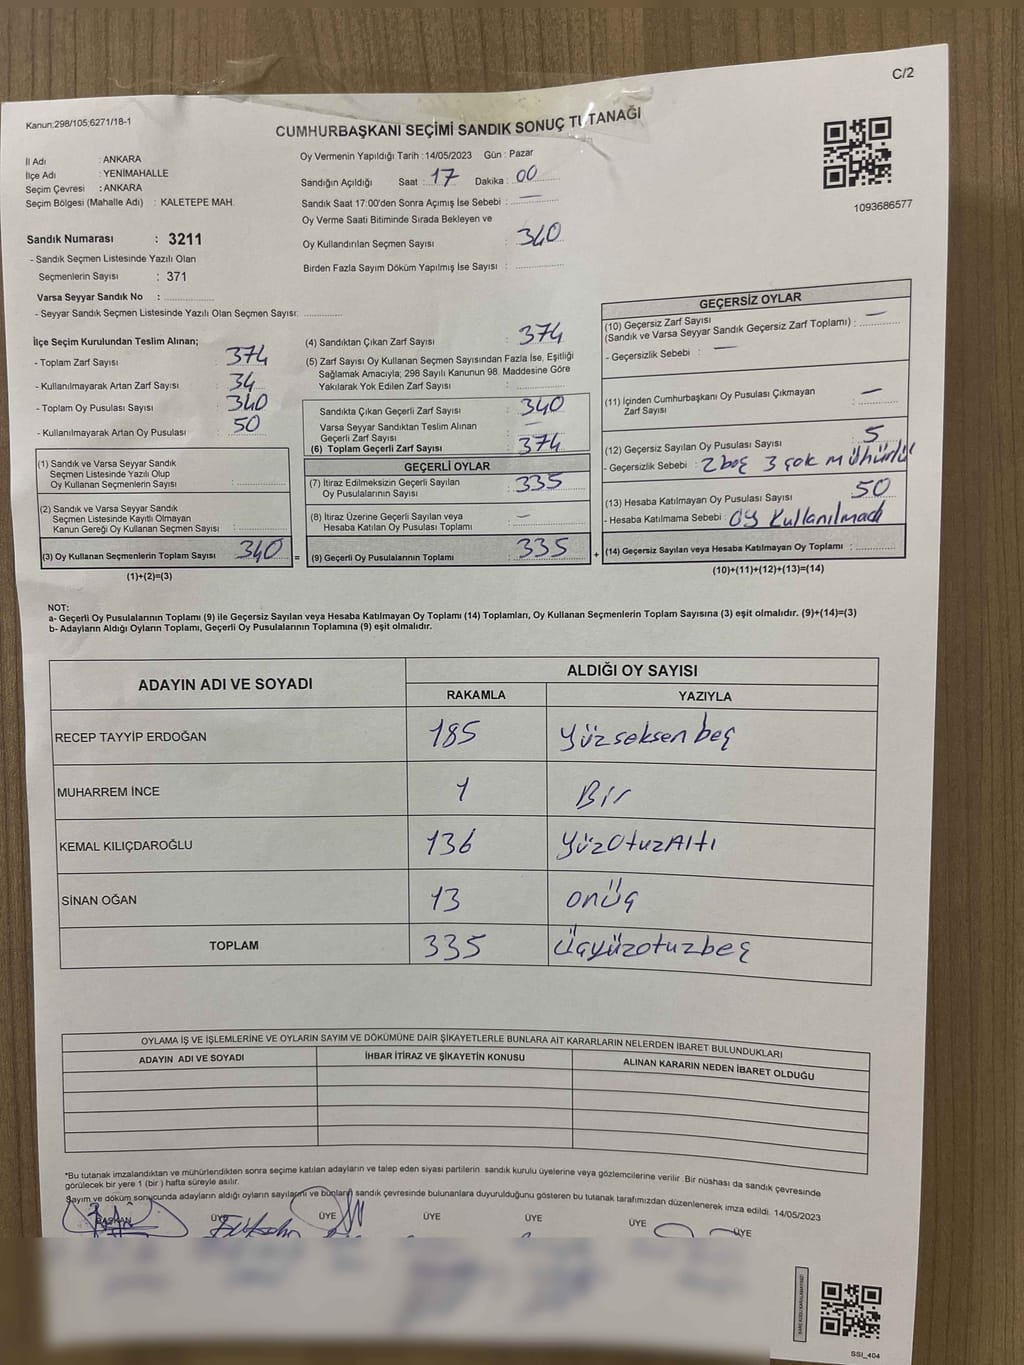 C/2
Kanun:298/105;6271/18-1
CUMHURBAŞKANI SEÇİMİ SANDIK SONUÇ TUTANAĞI
İl Adı : ANKARA
İlçe Adı : YENİMAHALLE
Seçim Çevresi : ANKARA
Seçim Bölgesi (Mahalle Adı) : KALETEPE MAH.
Oy Vermenin Yapıldığı Tarih : 14/05/2023 Gün : Pazar
Sandığın Açıldığı Saat : 17 Dakika : 00
Sandık Saat 17:00'den Sonra Açımış İse Sebebi : —
Oy Verme Saati Bitiminde Sırada Bekleyen ve
Oy Kullandırılan Seçmen Sayısı : 340
Birden Fazla Sayım Döküm Yapılmış İse Sayısı :
1093686577
Sandık Numarası : 3211
- Sandık Seçmen Listesinde Yazılı Olan
Seçmenlerin Sayısı : 371
Varsa Seyyar Sandık No :
- Seyyar Sandık Seçmen Listesinde Yazılı Olan Seçmen Sayısı:
İlçe Seçim Kurulundan Teslim Alınan;
- Toplam Zarf Sayısı : 374
- Kullanılmayarak Artan Zarf Sayısı : 34
- Toplam Oy Pusulası Sayısı : 340
- Kullanılmayarak Artan Oy Pusulası : 50
(1) Sandık ve Varsa Seyyar Sandık
Seçmen Listesinde Yazılı Olup
Oy Kullanan Seçmenlerin Sayısı :
(2) Sandık ve Varsa Seyyar Sandık
Seçmen Listesinde Kayıtlı Olmayan
Kanun Gereği Oy Kullanan Seçmen Sayısı :
(3) Oy Kullanan Seçmenlerin Toplam Sayısı 340 =
(1)+(2)=(3)
(4) Sandıktan Çıkan Zarf Sayısı : 374
(5) Zarf Sayısı Oy Kullanan Seçmen Sayısından Fazla İse, Eşitliği
Sağlamak Amacıyla; 298 Sayılı Kanunun 98. Maddesine Göre
Yakılarak Yok Edilen Zarf Sayısı :
Sandıkta Çıkan Geçerli Zarf Sayısı : 340
Varsa Seyyar Sandıktan Teslim Alınan
Geçerli Zarf Sayısı : —
(6) Toplam Geçerli Zarf Sayısı : 374
GEÇERLİ OYLAR
(7) İtiraz Edilmeksizin Geçerli Sayılan
Oy Pusulalarının Sayısı : 335
(8) İtiraz Üzerine Geçerli Sayılan veya
Hesaba Katılan Oy Pusulası Toplamı : —
(9) Geçerli Oy Pusulalarının Toplamı : 335 +
GEÇERSİZ OYLAR
(10) Geçersiz Zarf Sayısı
(Sandık ve Varsa Seyyar Sandık Geçersiz Zarf Toplamı) : —
- Geçersizlik Sebebi : —
(11) İçinden Cumhurbaşkanı Oy Pusulası Çıkmayan
Zarf Sayısı : —
(12) Geçersiz Sayılan Oy Pusulası Sayısı : 5
- Geçersizlik Sebebi : 2 boş 3 çok mühürlü
(13) Hesaba Katılmayan Oy Pusulası Sayısı : 50
- Hesaba Katılmama Sebebi : Oy Kullanılmadı
(14) Geçersiz Sayılan veya Hesaba Katılmayan Oy Toplamı :
(10)+(11)+(12)+(13)=(14)
NOT:
a- Geçerli Oy Pusulalarının Toplamı (9) ile Geçersiz Sayılan veya Hesaba Katılmayan Oy Toplamı (14) Toplamları, Oy Kullanan Seçmenlerin Toplam Sayısına (3) eşit olmalıdır. (9)+(14)=(3)
b- Adayların Aldığı Oyların Toplamı, Geçerli Oy Pusulalarının Toplamına (9) eşit olmalıdır.
ADAYIN ADI VE SOYADI ALDIĞI OY SAYISI
RAKAMLA YAZIYLA
RECEP TAYYİP ERDOĞAN 185 Yüzseksenbeş
MUHARREM İNCE 1 Bir
KEMAL KILIÇDAROĞLU 136 YüzOtuzAltı
SİNAN OĞAN 13 onüç
TOPLAM 335 Üçyüzotuzbeş
OYLAMA İŞ VE İŞLEMLERİNE VE OYLARIN SAYIM VE DÖKÜMÜNE DAİR ŞİKAYETLERLE BUNLARA AİT KARARLARIN NELERDEN İBARET BULUNDUKLARI
ADAYIN ADI VE SOYADI İHBAR İTİRAZ VE ŞİKAYETİN KONUSU ALINAN KARARIN NEDEN İBARET OLDUĞU
*Bu tutanak imzalandıktan ve mühürlendikten sonra seçime katılan adayların ve talep eden siyasi partilerin sandık kurulu üyelerine veya gözlemcilerine verilir. Bir nüshası da sandık çevresinde
görülecek bir yere 1 (bir) hafta süreyle asılır.
Sayım ve döküm sonucunda adayların aldığı oyların sayılarını ve bunların sandık çevresinde bulunanlara duyurulduğunu gösteren bu tutanak tarafımızdan düzenlenerek imza edildi. 14/05/2023
BAŞKAN ÜYE ÜYE ÜYE ÜYE ÜYE ÜYE
SSI_404